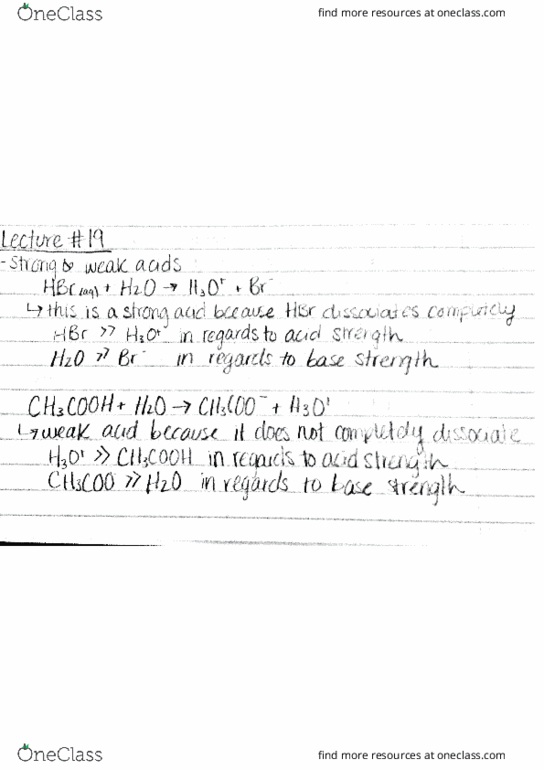 OneClass find more resources at oneclass.com
Lecture #19
- Strong & weak acids
HBr(aq) + H2O → H3O+ + Br-
↳ this is a strong acid because HBr dissociates completely
HBr >> H3O+ in regards to acid strength
H2O >> Br- in regards to base strength
CH3COOH + H2O → CH3COO- + H3O+
↳ weak acid because it does not completely dissociate
H3O+ >> CH3COOH in regards to acid strength
CH3COO >> H2O in regards to base strength
OneClass find more resources at oneclass.com